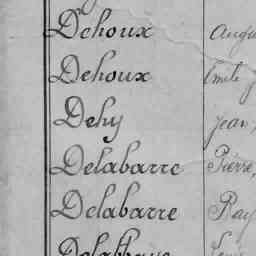 Dehoux Augu
Dehoux Emile
Dehy Jean,
Delabarre Pierre,
Delabarre Ray